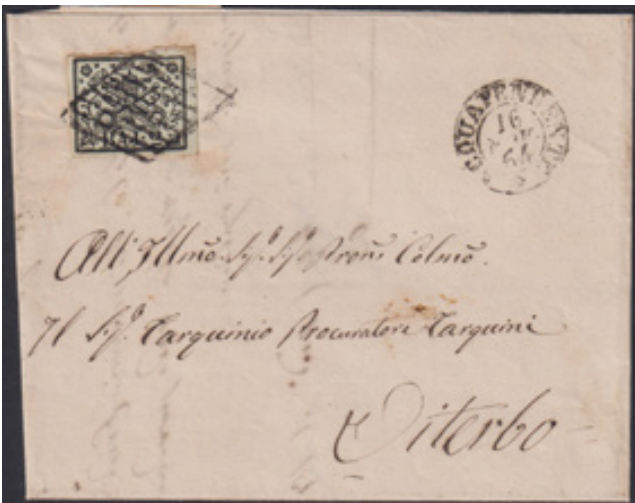 ACQUAPENDENTE
16
64
All' Illmo Sig. Sig. Pron Colmo.
Il Sig. Tarquinio Procuratore Tarquini
Viterbo